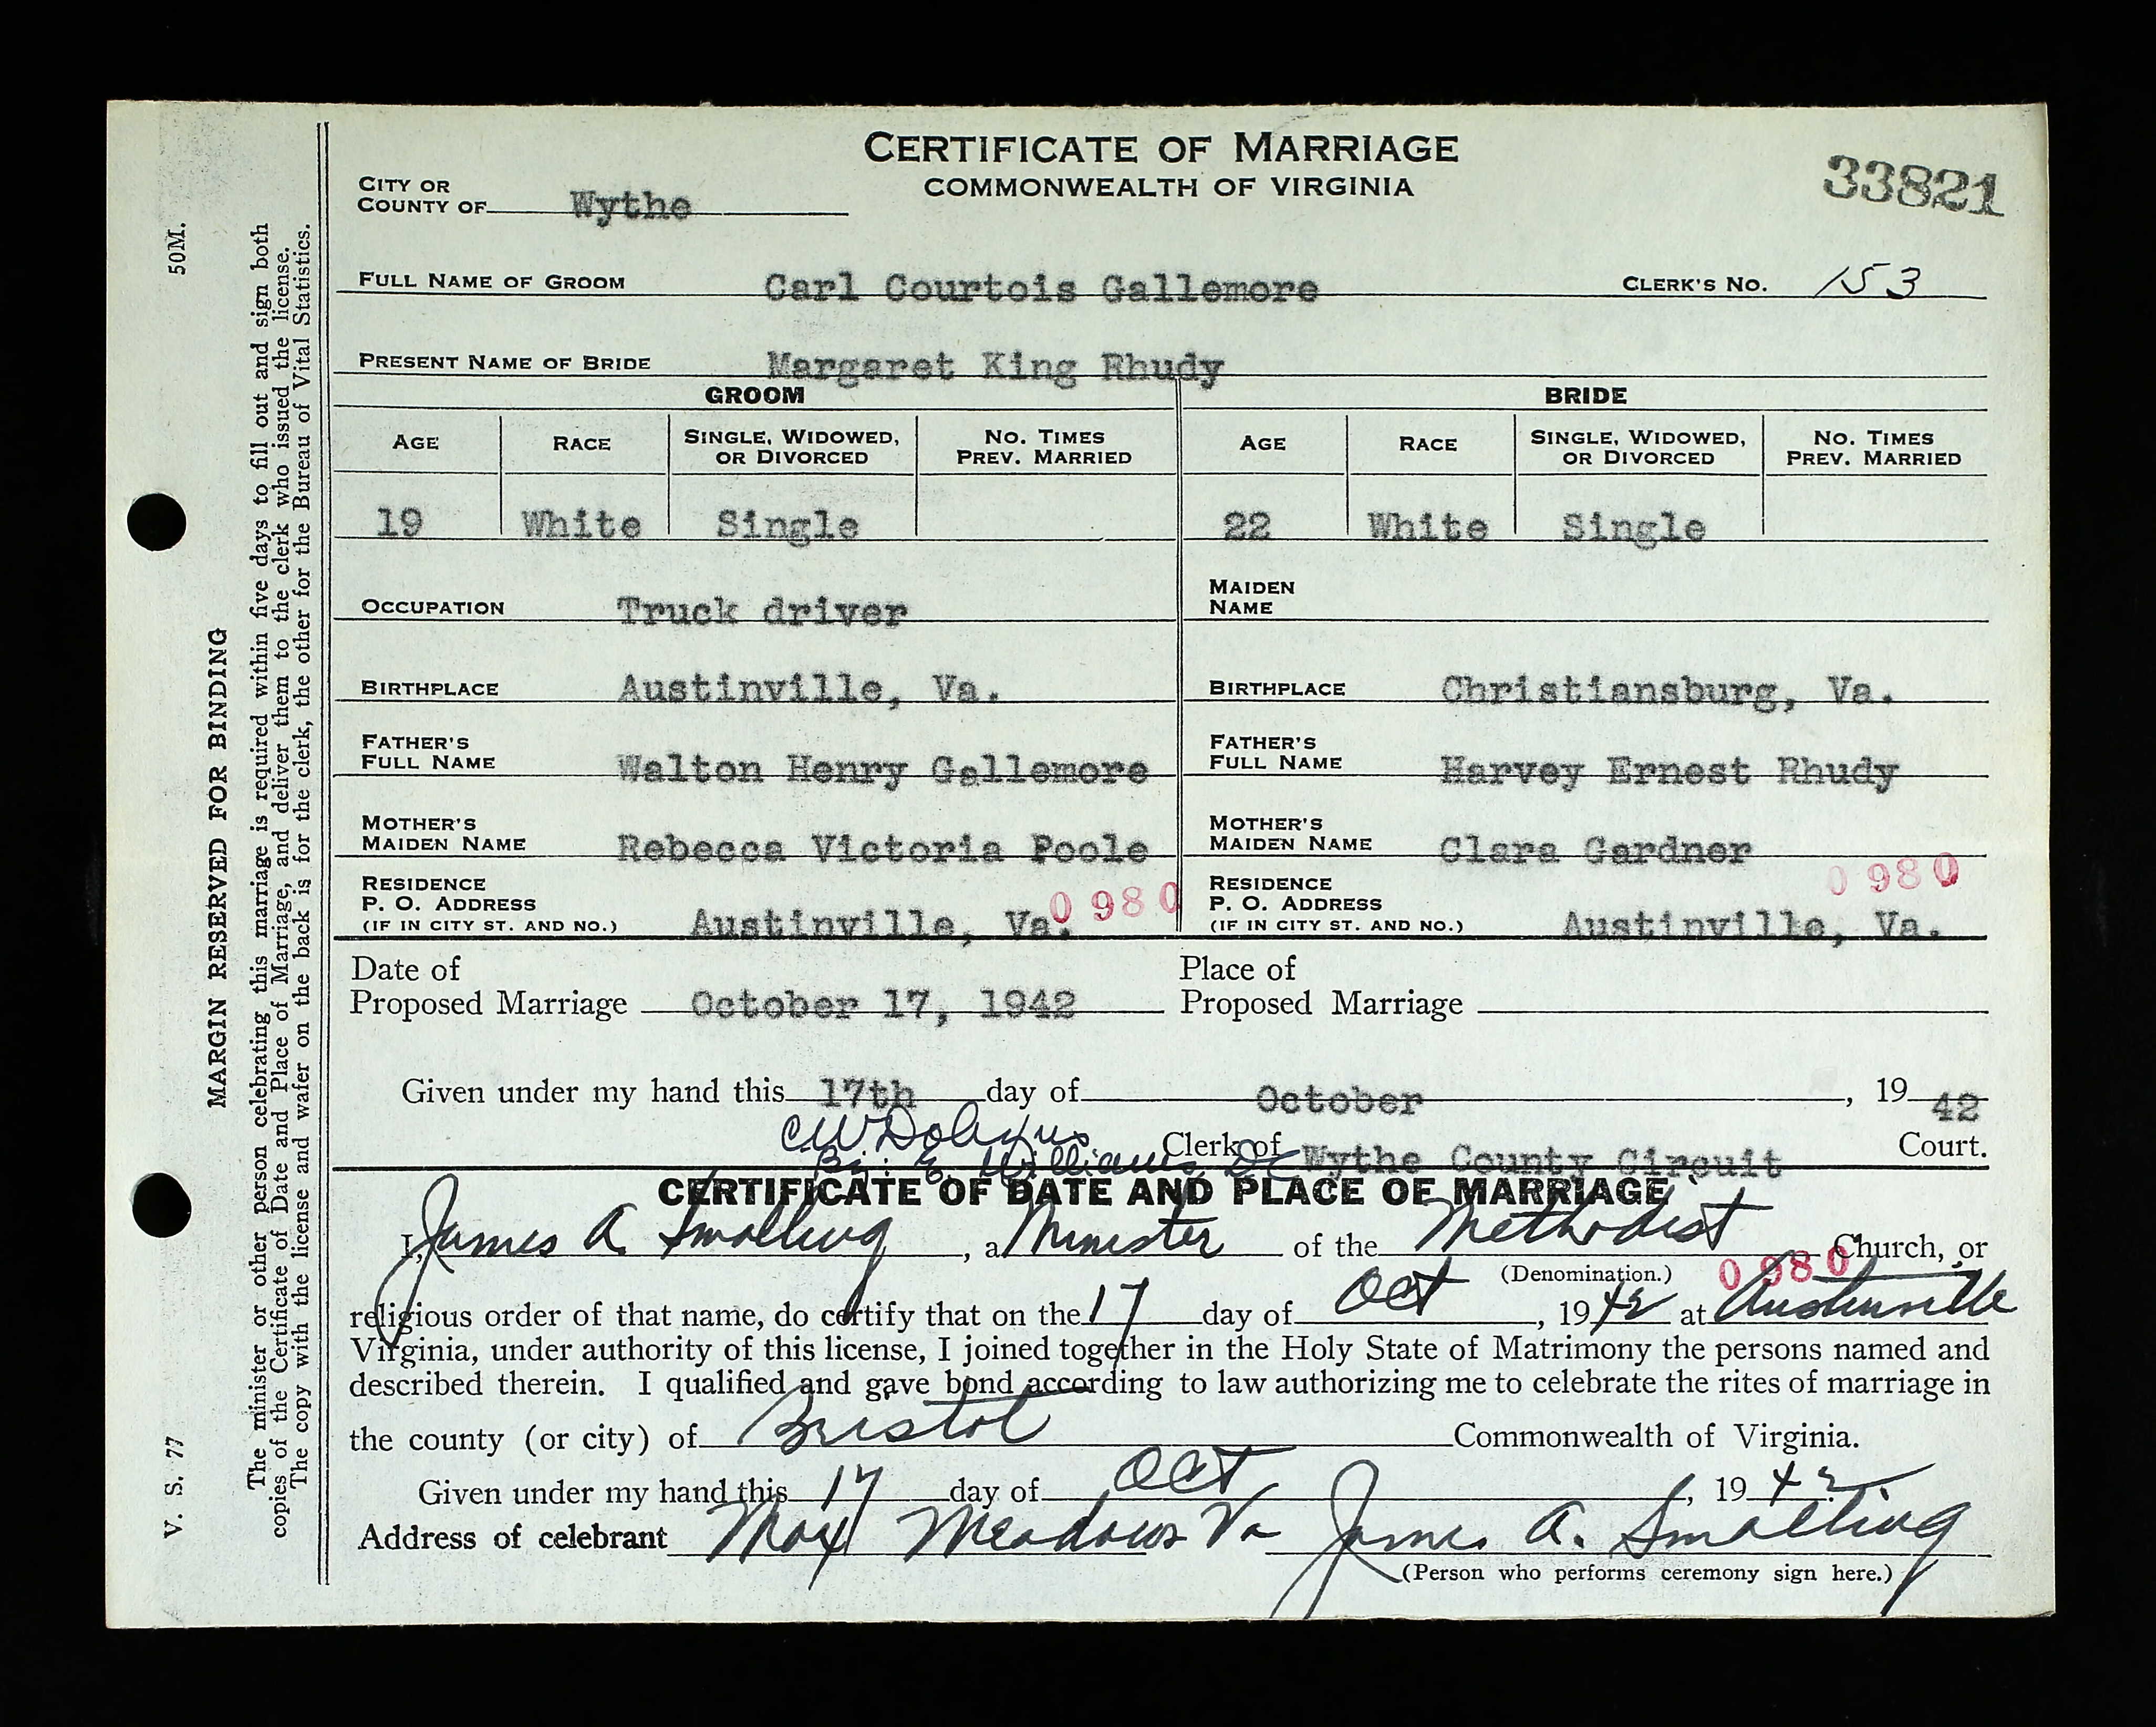 CERTIFICATE OF MARRIAGE
COMMONWEALTH OF VIRGINIA
33821
CITY OR COUNTY OF Wythe
FULL NAME OF GROOM Carl Courtois Gallemore CLERK'S No. 153
PRESENT NAME OF BRIDE Margaret King Rhudy
GROOM BRIDE
AGE RACE SINGLE, WIDOWED, OR DIVORCED NO. TIMES PREV. MARRIED AGE RACE SINGLE, WIDOWED, OR DIVORCED NO. TIMES PREV. MARRIED
19 White Single 22 White Single
OCCUPATION Truck driver MAIDEN NAME
BIRTHPLACE Austinville, Va. BIRTHPLACE Christiansburg, Va.
FATHER'S FULL NAME Walton Henry Gallemore FATHER'S FULL NAME Harvey Ernest Rhudy
MOTHER'S MAIDEN NAME Rebecca Victoria Poole MOTHER'S MAIDEN NAME Clara Gardner
0980 0980
RESIDENCE P. O. ADDRESS (IF IN CITY ST. AND NO.) Austinville, Va. RESIDENCE P. O. ADDRESS (IF IN CITY ST. AND NO.) Austinville, Va.
Date of Proposed Marriage October 17, 1942 Place of Proposed Marriage
Given under my hand this 17th day of October, 1942
C W Clerk of Wythe County Circuit Court.
By: E. Williams, DC
CERTIFICATE OF DATE AND PLACE OF MARRIAGE
I, James A. Smalling, a Minister of the Methodist Church, or
(Denomination.) 0980
religious order of that name, do certify that on the 17 day of Oct, 1942 at Austinville
Virginia, under authority of this license, I joined together in the Holy State of Matrimony the persons named and
described therein. I qualified and gave bond according to law authorizing me to celebrate the rites of marriage in
the county (or city) of Bristol Commonwealth of Virginia.
Given under my hand this 17 day of Oct, 1942.
Address of celebrant Max Meadows Va James A. Smalling
(Person who performs ceremony sign here.)
V. S. 77 50M.
MARGIN RESERVED FOR BINDING
The minister or other person celebrating this marriage is required within five days to fill out and sign both
copies of the Certificate of Date and Place of Marriage, and deliver them to the clerk who issued the license.
The copy with the license and wafer on the back is for the clerk, the other for the Bureau of Vital Statistics.